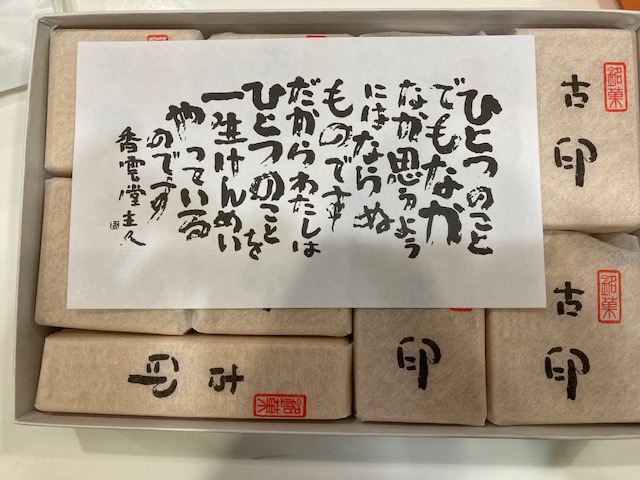 ひとつのこと
でもなか
なか思うよう
にはならぬ
ものです
だからわたしは
ひとつのことを
一生けんめい
やっている
のです
香雲堂主人
銘菓
古印
銘菓
古印
印
古印
銘菓